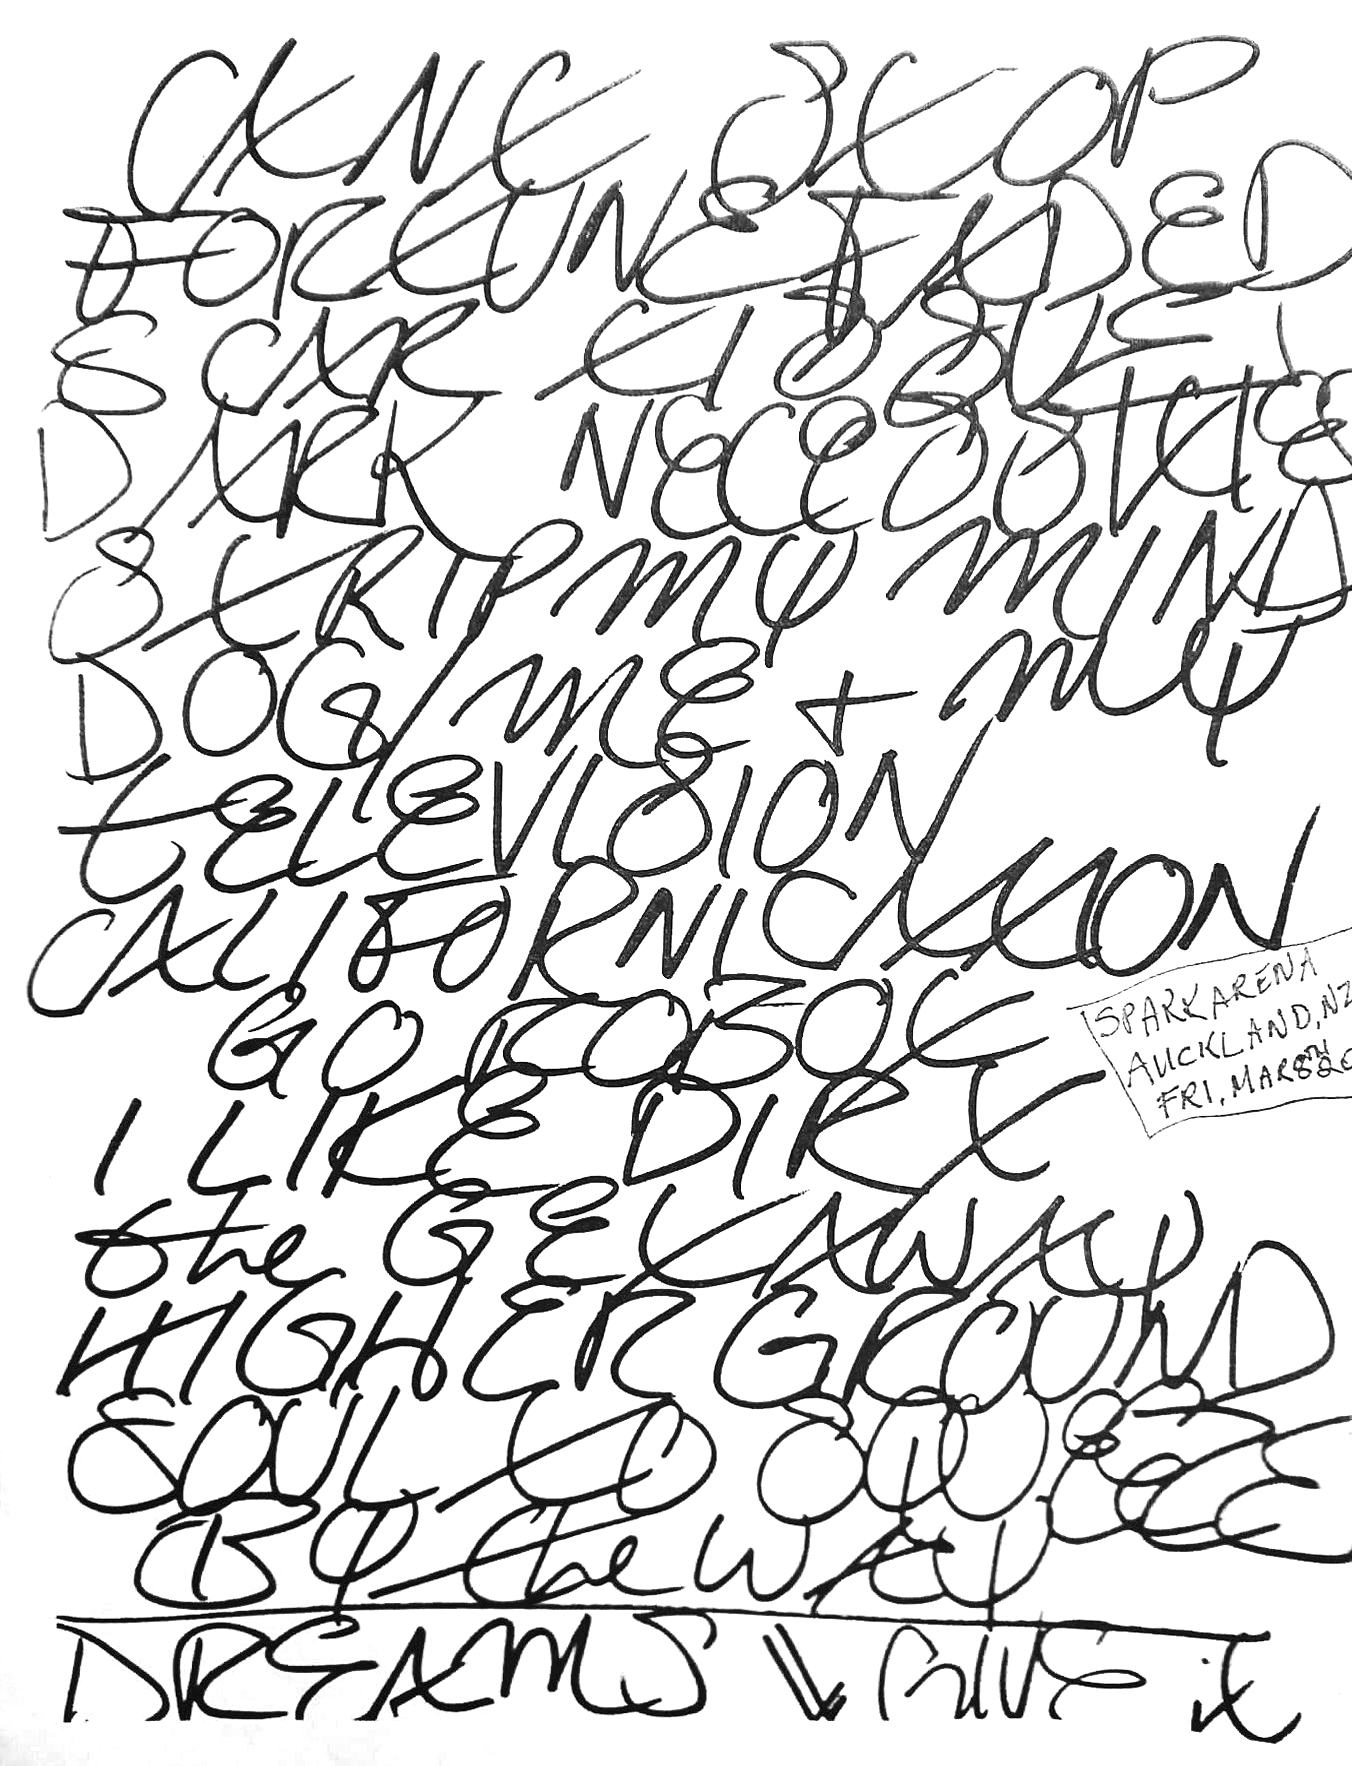 CAN'T STOP
FORTUNE FADED
SCAR TISSUE
DARK NECESSITIES
STRIP MY MIND
DOG/ME + MY
TELEVISION
CALIFORNICATION
GO ROBOT
I LIKE DIRT
the GETAWAY
HIGHER GROUND
SOUL TO SQUEEZE
BY the WAY
DREAMS \\ GIVE it
SPARK ARENA
AUCKLAND, NZ
FRI, MAR 8TH